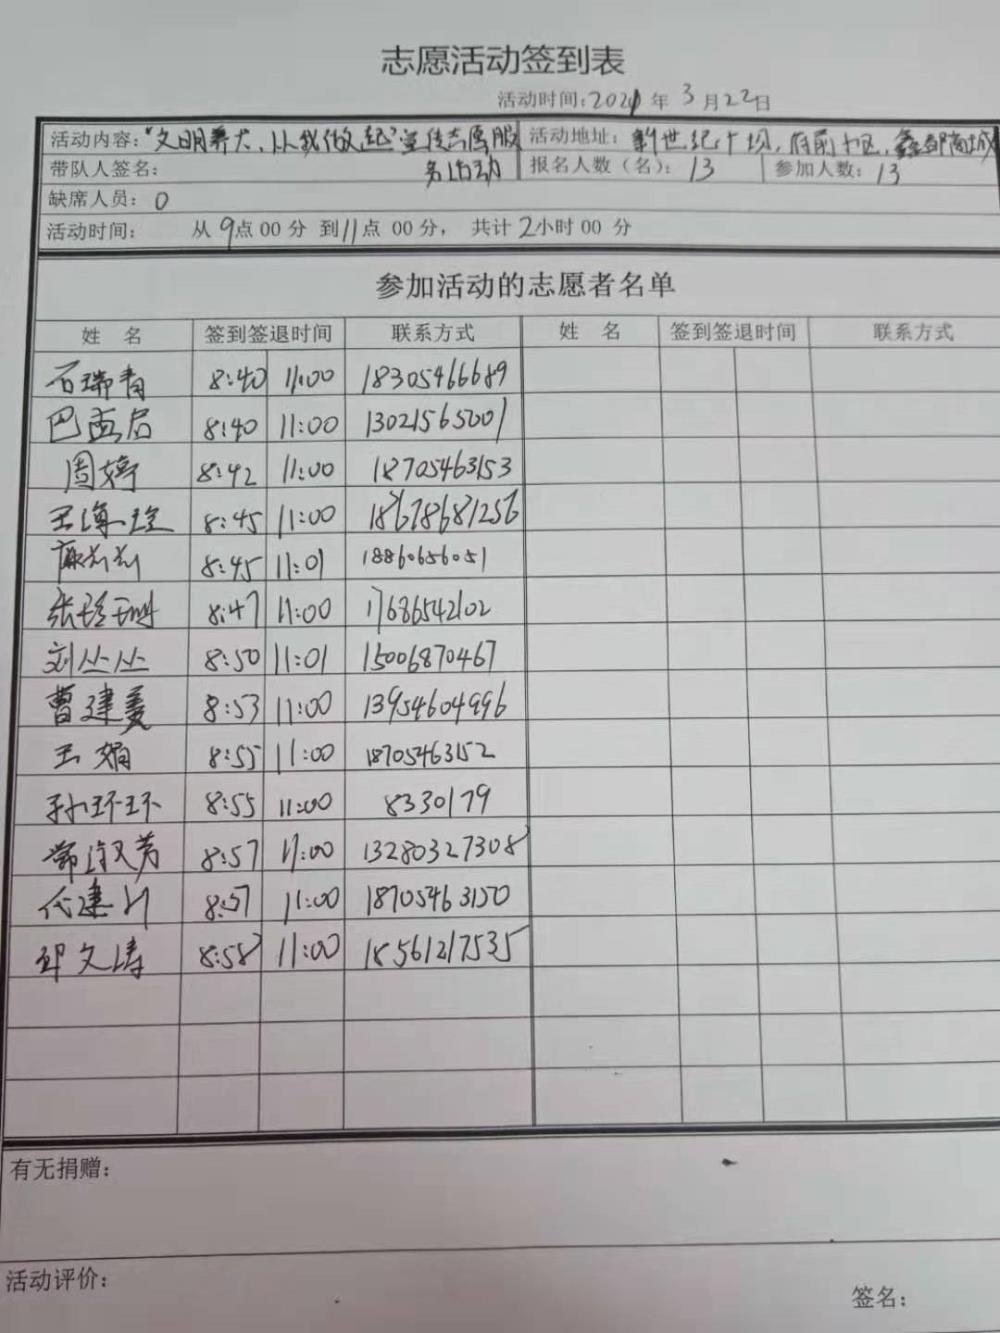 志愿活动签到表
活动时间：2021 年 3 月 22 日
活动内容："文明养犬，从我做起"宣传志愿服务活动 活动地址：新世纪广场，府前小区，鑫都商城
带队人签名： 报名人数（名）：13 参加人数：13
缺席人员：0
活动时间： 从 9点 00 分 到 11点 00 分， 共计 2小时 00 分
参加活动的志愿者名单
姓 名 签到签退时间 联系方式 姓 名 签到签退时间 联系方式
石瑞青 8:40 11:00 18305466689
巴孟启 8:40 11:00 13021565001
周婷 8:42 11:00 18705463153
王 8:45 11:00 18678681256
8:45 11:01 18860656051
张珍珊 8:47 11:00 17686542102
刘丛丛 8:50 11:01 15006870467
曹建美 8:53 11:00 13954604996
王娟 8:55 11:00 18705463152
孙环环 8:55 11:00 8330179
常淑芳 8:57 11:00 13280327308
代建 8:57 11:00 18705463150
邱文涛 8:58 11:00 18561217535
有无捐赠：
活动评价：
签名：